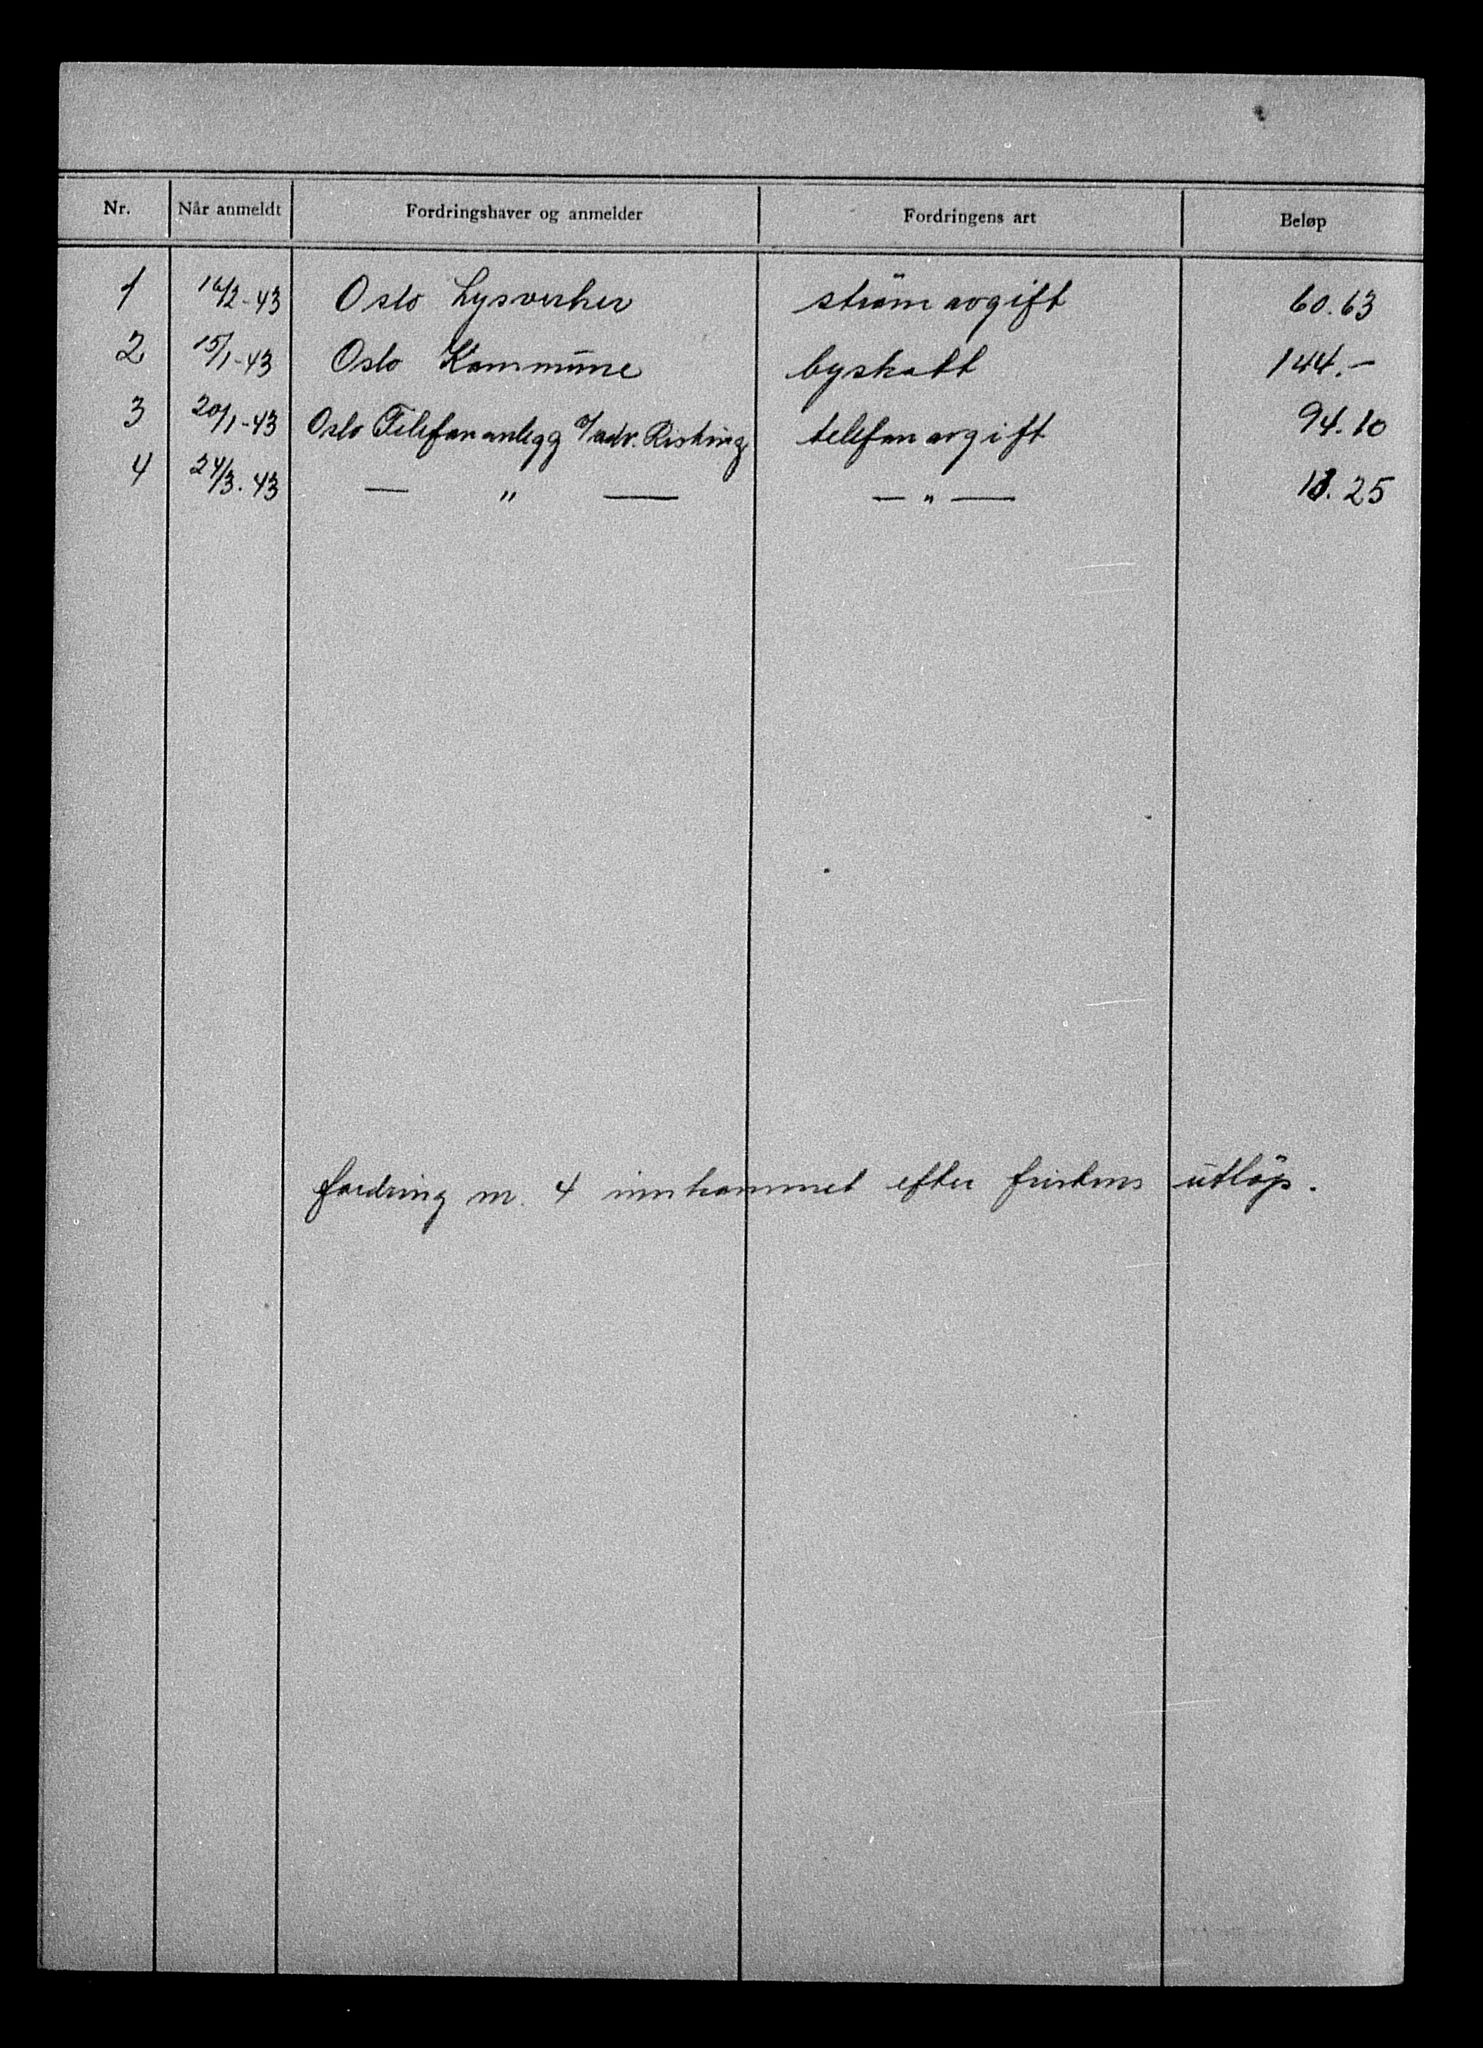 Nr. Når anmeldt Fordringshaver og anmelder Fordringens art Beløp
1 16/2-43 Oslo Lysverker strömavgift 60.63
2 15/1-43 Oslo Kommune byskatt 144.-
3 20/1-43 Oslo Telefonanlegg v/adv. Risting telefonavgift 94.10
4 24/3.43 — " — — " — 25
fordring nr. 4 innkommet efter fristens utløp.